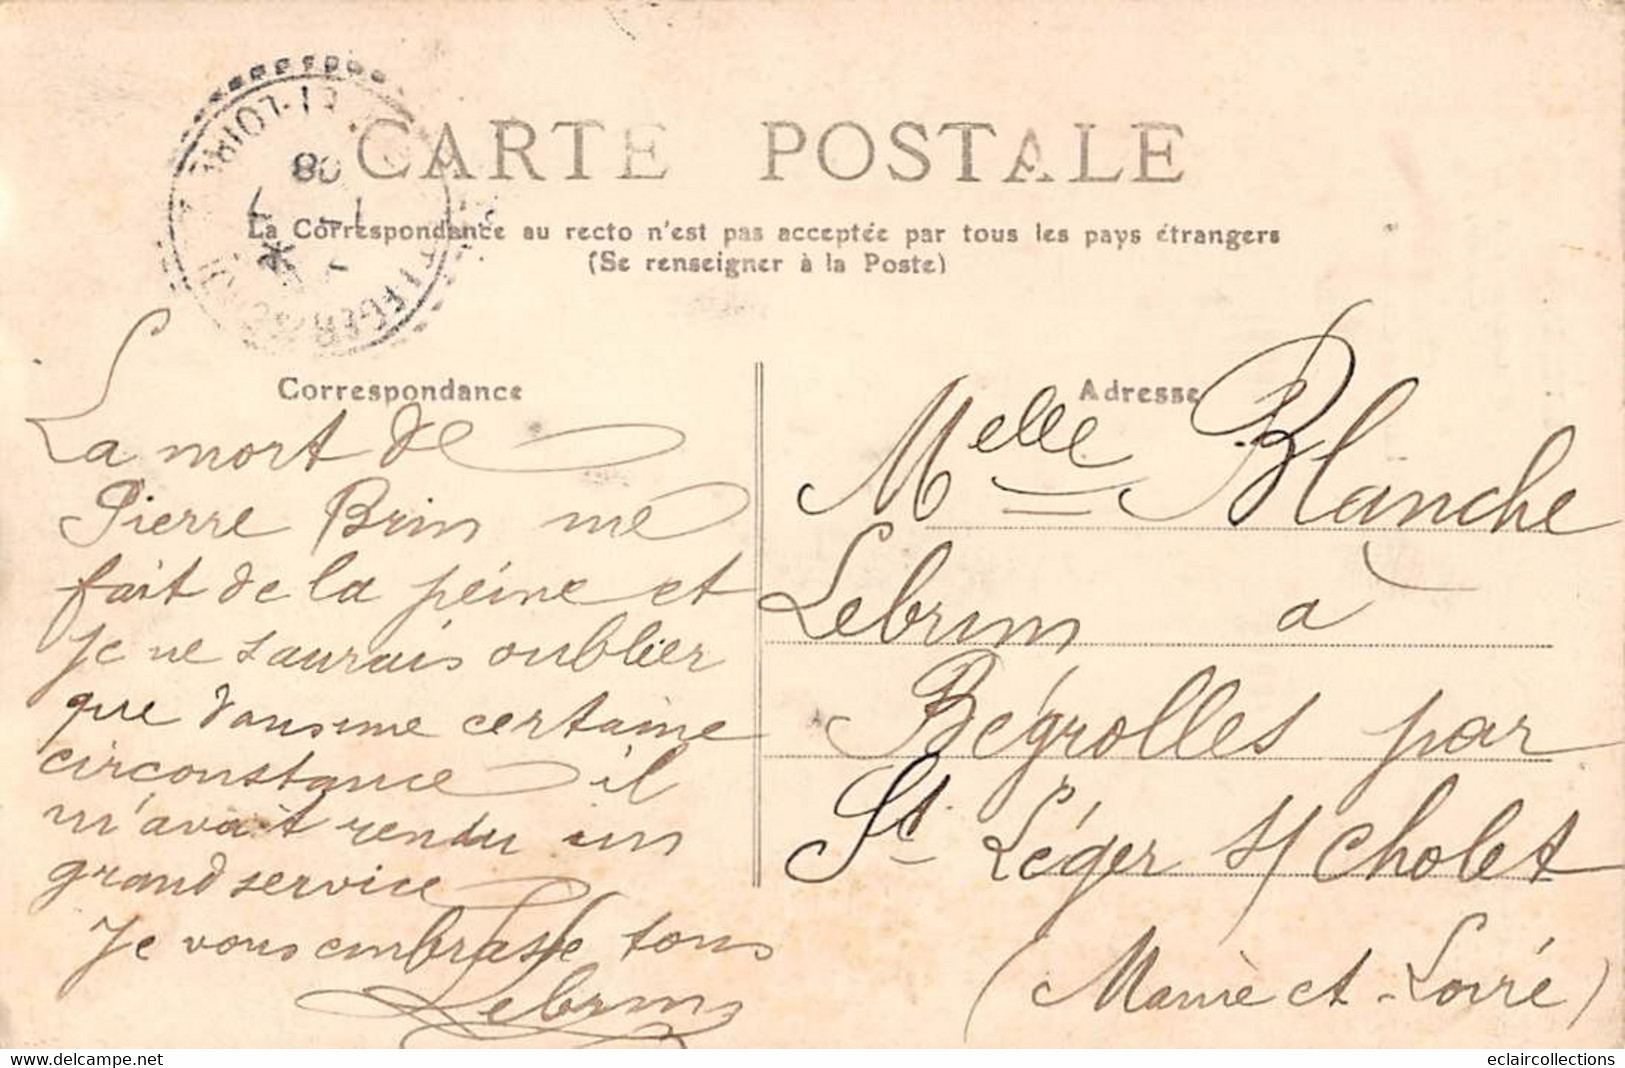 CARTE POSTALE
La Correspondance au recto n'est pas acceptée par tous les pays étrangers
(Se renseigner à la Poste)
Correspondance
La mort de
Pierre Brin me
fait de la peine et
je ne saurais oublier
que dans une certaine
circonstance il
m'avait rendu un
grand service
Je vous embrasse tous
Lebrun
Adresse
Melle Blanche
Lebrun à
Bégrolles par
St Léger s/ Cholet
(Maine et Loire)
08
eclaircollections